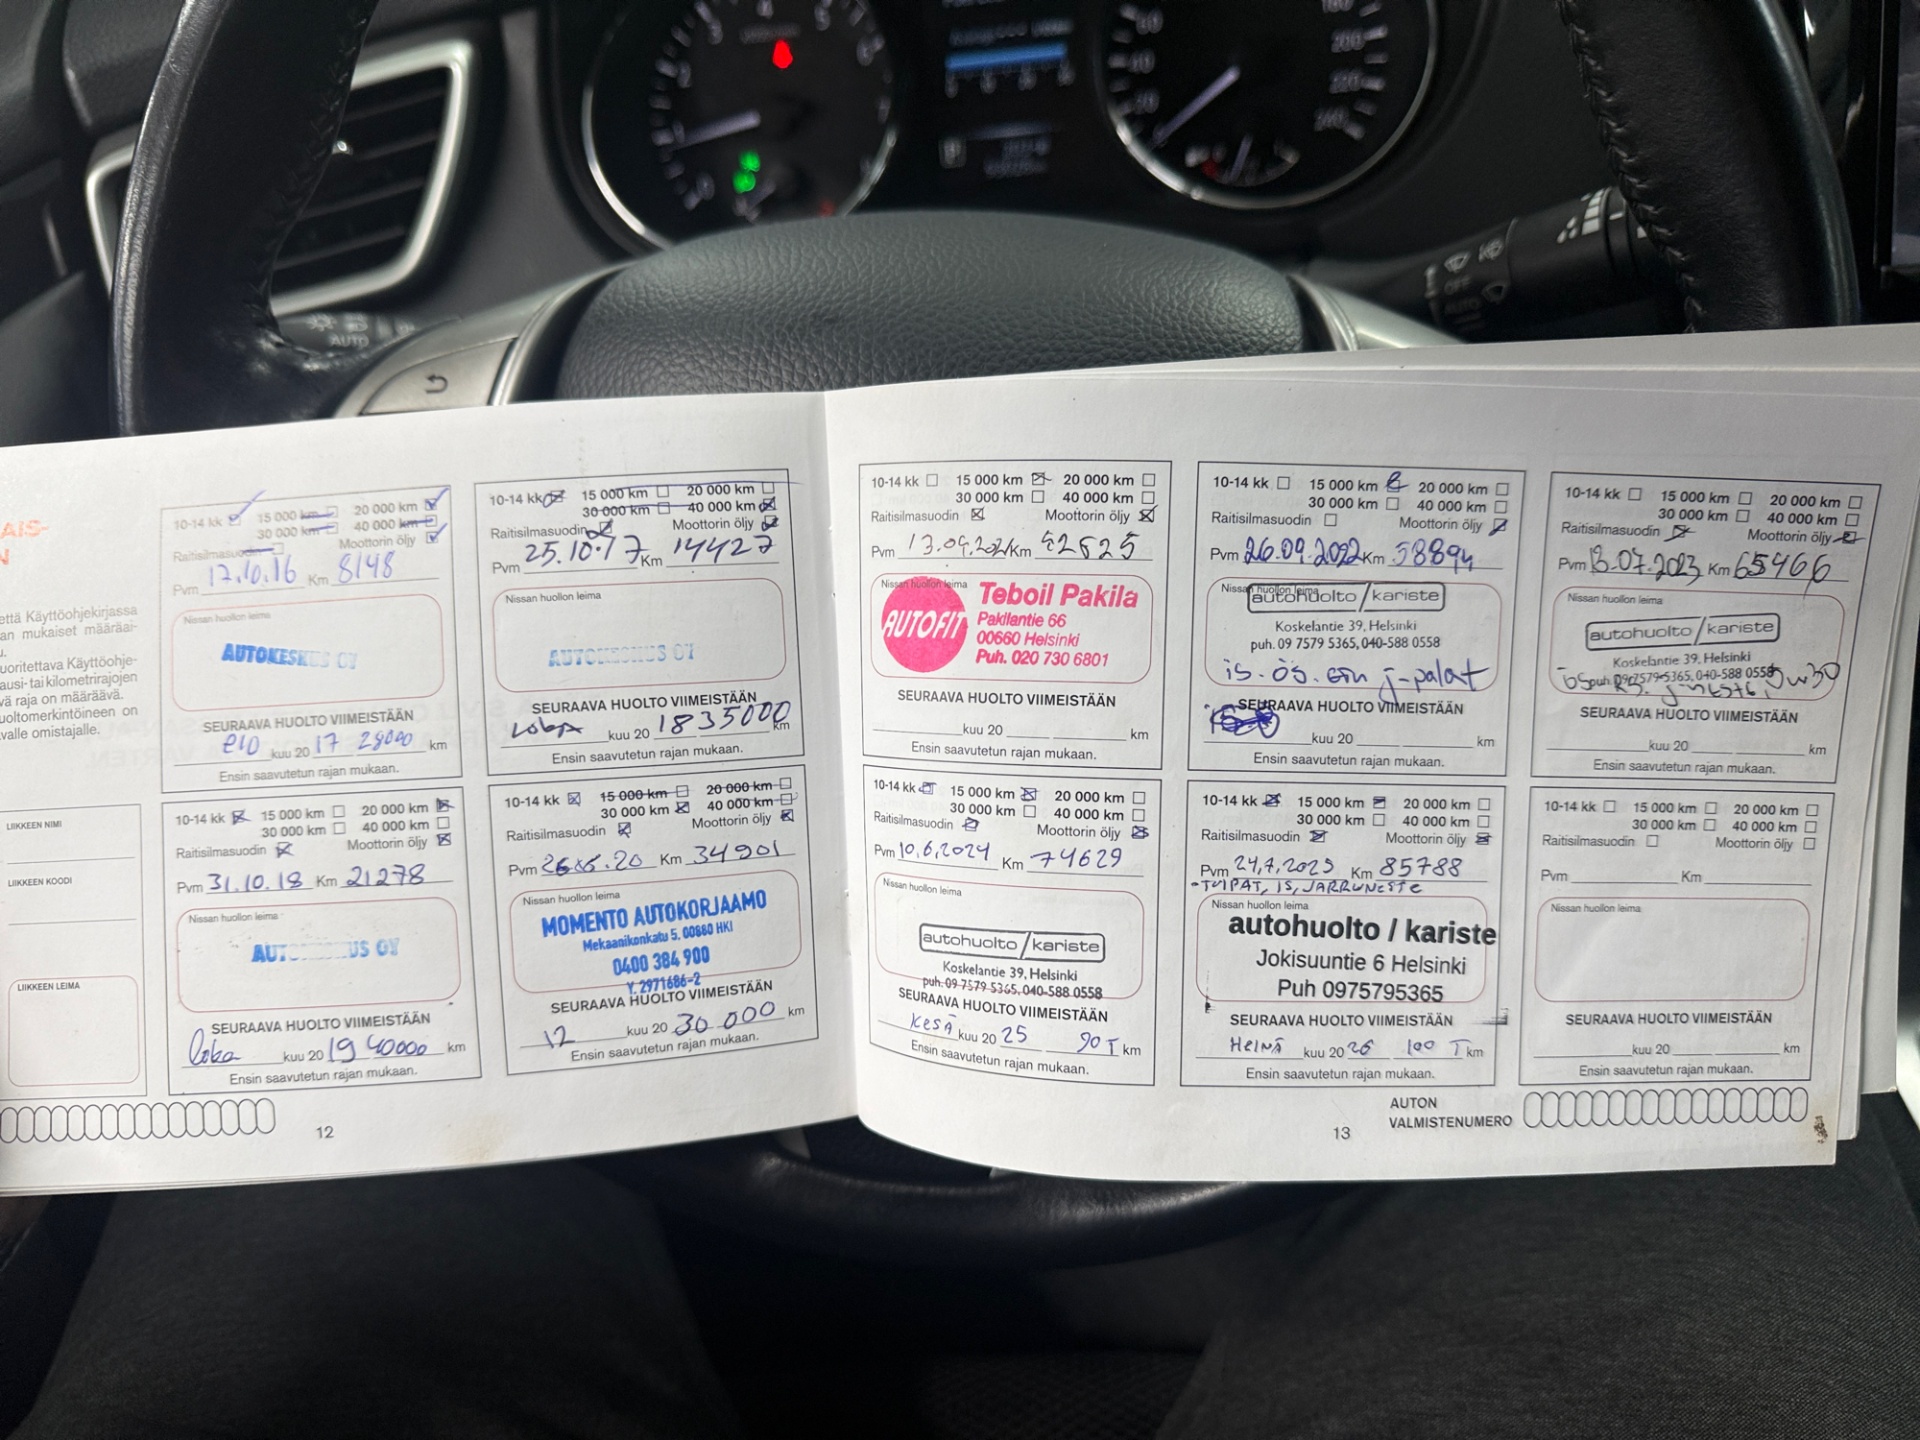 AIS-
N
että Käyttöohjekirjassa
an mukaiset määräai-
u.
uoritettava Käyttöohje-
ausi- tai kilometrirajojen
vä raja on määräävä.
uoltomerkintöineen on
valle omistajalle.
LIIKKEEN NIMI
LIIKKEEN KOODI
LIIKKEEN LEIMA
10-14 kk 15 000 km 20 000 km
30 000 km 40 000 km
Raitisilmasuodin Moottorin öljy
Pvm 17.10.16 Km 8148
Nissan huollon leima
AUTOKESKUS OY
SEURAAVA HUOLTO VIIMEISTÄÄN
elo kuu 20 17 28000 km
Ensin saavutetun rajan mukaan.
10-14 kk 15 000 km 20 000 km
30 000 km 40 000 km
Raitisilmasuodin Moottorin öljy
Pvm 25.10.17 Km 14427
Nissan huollon leima
AUTOKESKUS OY
SEURAAVA HUOLTO VIIMEISTÄÄN
Loka kuu 20 18 35000 km
Ensin saavutetun rajan mukaan.
10-14 kk 15 000 km 20 000 km
30 000 km 40 000 km
Raitisilmasuodin Moottorin öljy
Pvm 31.10.18 Km 21278
Nissan huollon leima
AUTOKESKUS OY
SEURAAVA HUOLTO VIIMEISTÄÄN
loka kuu 20 19 40000 km
Ensin saavutetun rajan mukaan.
10-14 kk 15 000 km 20 000 km
30 000 km 40 000 km
Raitisilmasuodin Moottorin öljy
Pvm Km 34901
Nissan huollon leima
MOMENTO AUTOKORJAAMO
Mekaanikonkatu 5, 00880 HKI
0400 384 900
Y. 2971686-2
SEURAAVA HUOLTO VIIMEISTÄÄN
12 kuu 20 30 000 km
Ensin saavutetun rajan mukaan.
12
10-14 kk 15 000 km 20 000 km
30 000 km 40 000 km
Raitisilmasuodin Moottorin öljy
Pvm 13.09.2021 Km
Nissan huollon leima
AUTOFIT
Teboil Pakila
Pakilantie 66
00660 Helsinki
Puh. 020 730 6801
SEURAAVA HUOLTO VIIMEISTÄÄN
kuu 20 km
Ensin saavutetun rajan mukaan.
10-14 kk 15 000 km 20 000 km
30 000 km 40 000 km
Raitisilmasuodin Moottorin öljy
Pvm 26.09.2022 Km 58894
Nissan huollon leima
autohuolto / kariste
Koskelantie 39, Helsinki
puh. 09 7579 5365, 040-588 0558
is. ös. j-palat
SEURAAVA HUOLTO VIIMEISTÄÄN
kuu 20 km
Ensin saavutetun rajan mukaan.
10-14 kk 15 000 km 20 000 km
30 000 km 40 000 km
Raitisilmasuodin Moottorin öljy
Pvm 13.07.2023 Km 65466
Nissan huollon leima
autohuolto / kariste
Koskelantie 39, Helsinki
puh. 09 7579 5365, 040-588 0558
SEURAAVA HUOLTO VIIMEISTÄÄN
kuu 20 km
Ensin saavutetun rajan mukaan.
10-14 kk 15 000 km 20 000 km
30 000 km 40 000 km
Raitisilmasuodin Moottorin öljy
Pvm 10.6.2024 Km 74629
Nissan huollon leima
autohuolto / kariste
Koskelantie 39, Helsinki
puh. 09 7579 5365, 040-588 0558
SEURAAVA HUOLTO VIIMEISTÄÄN
KESÄ kuu 20 25 90 T km
Ensin saavutetun rajan mukaan.
10-14 kk 15 000 km 20 000 km
30 000 km 40 000 km
Raitisilmasuodin Moottorin öljy
Pvm 24.7.2025 Km 85788
- TULPAT, IS, JARRUNESTE
Nissan huollon leima
autohuolto / kariste
Jokisuuntie 6 Helsinki
Puh 0975795365
SEURAAVA HUOLTO VIIMEISTÄÄN
HEINÄ kuu 20 26 100 T km
Ensin saavutetun rajan mukaan.
10-14 kk 15 000 km 20 000 km
30 000 km 40 000 km
Raitisilmasuodin Moottorin öljy
Pvm Km
Nissan huollon leima
SEURAAVA HUOLTO VIIMEISTÄÄN
kuu 20 km
Ensin saavutetun rajan mukaan.
13
AUTON
VALMISTENUMERO
AUTO
OFF
AUTO